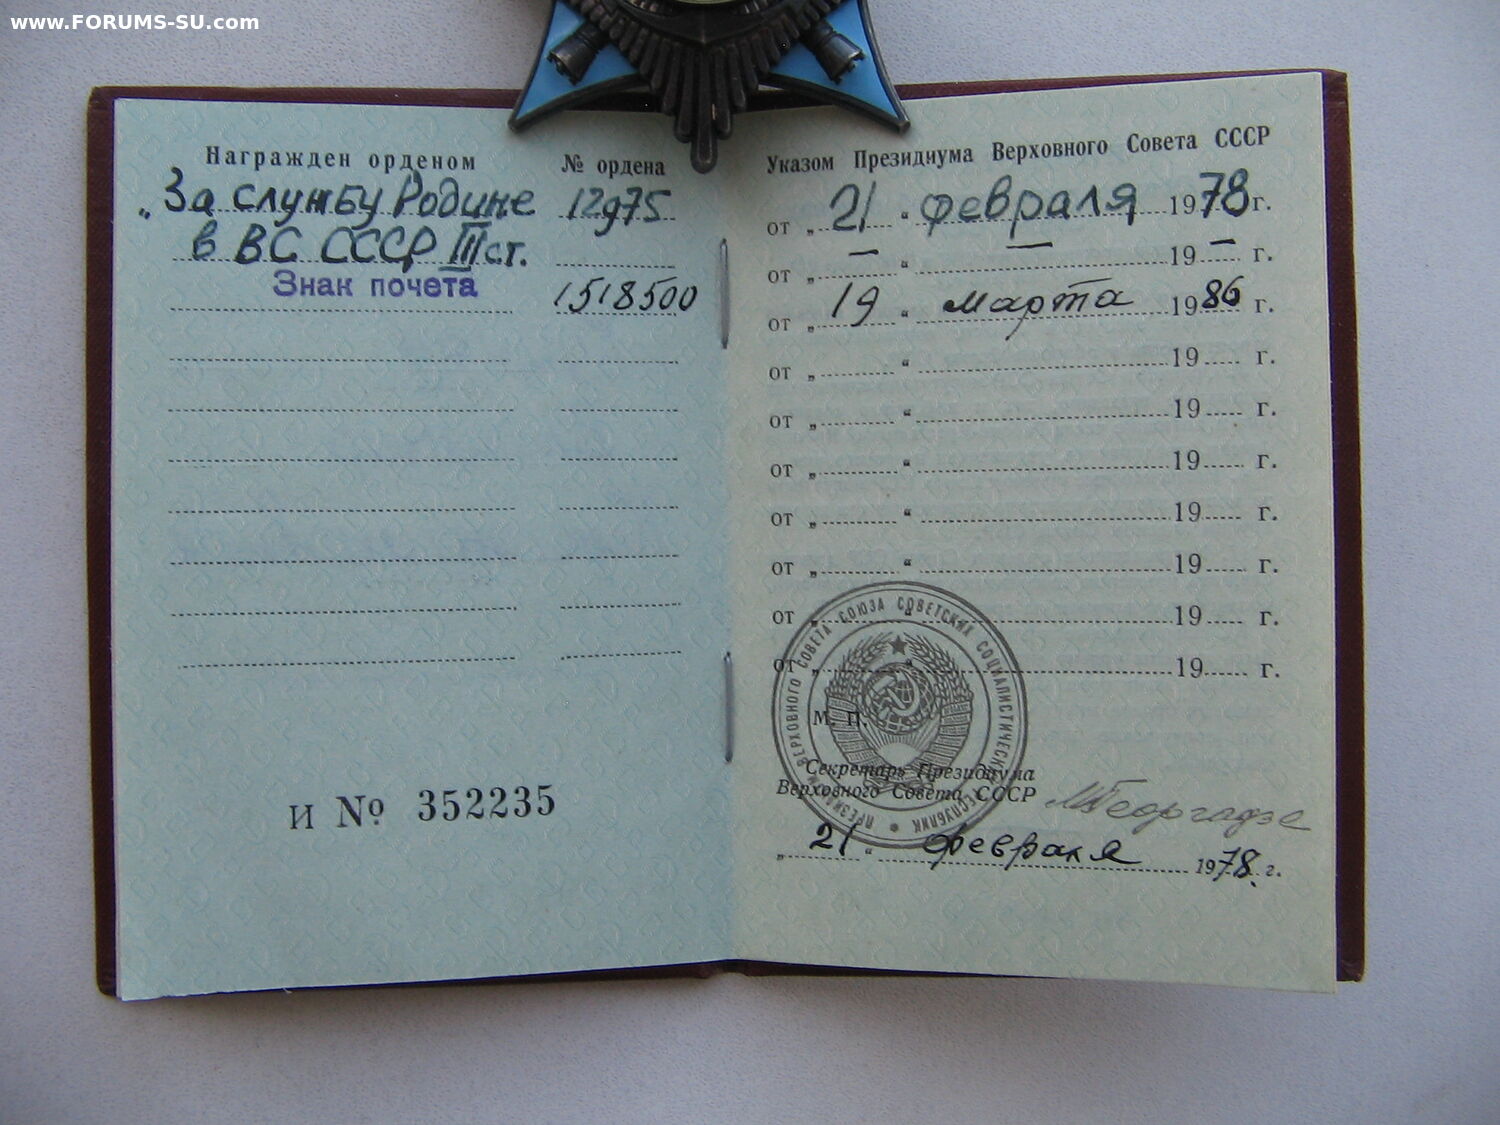 www.FORUMS-SU.com
Награжден орденом № ордена
„За службу Родине 12975
в ВС СССР III ст.
Знак почета 1518500
И № 352235
Указом Президиума Верховного Совета СССР
от „ 21 “ февраля 1978 г.
от „ — “ — 19 — г.
от „ 19 “ марта 1986 г.
от „ “ 19 г.
от „ “ 19 г.
от „ “ 19 г.
от „ “ 19 г.
от „ “ 19 г.
от „ “ 19 г.
от „ “ 19 г.
ПРЕЗИДИУМ ВЕРХОВНОГО СОВЕТА СОЮЗА СОВЕТСКИХ СОЦИАЛИСТИЧЕСКИХ РЕСПУБЛИК
М. П.
Секретарь Президиума
Верховного Совета СССР МГеоргадзе
„ 21 “ февраля 1978 г.